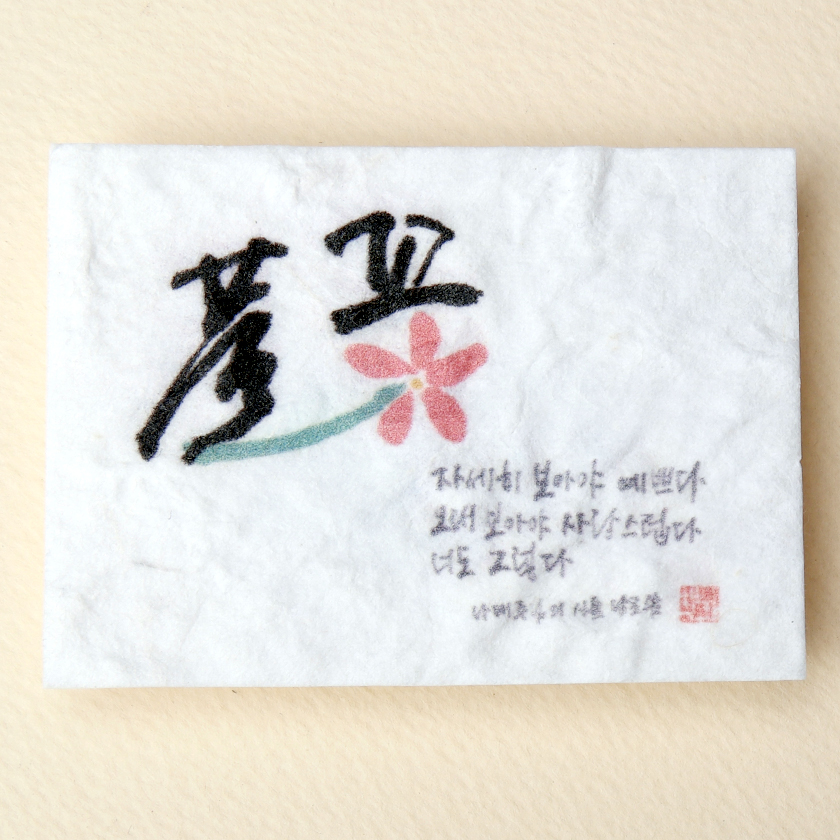 풀꽃
자세히 보아야 예쁘다
오래 보아야 사랑스럽다
너도 그렇다
나태주님의 시를